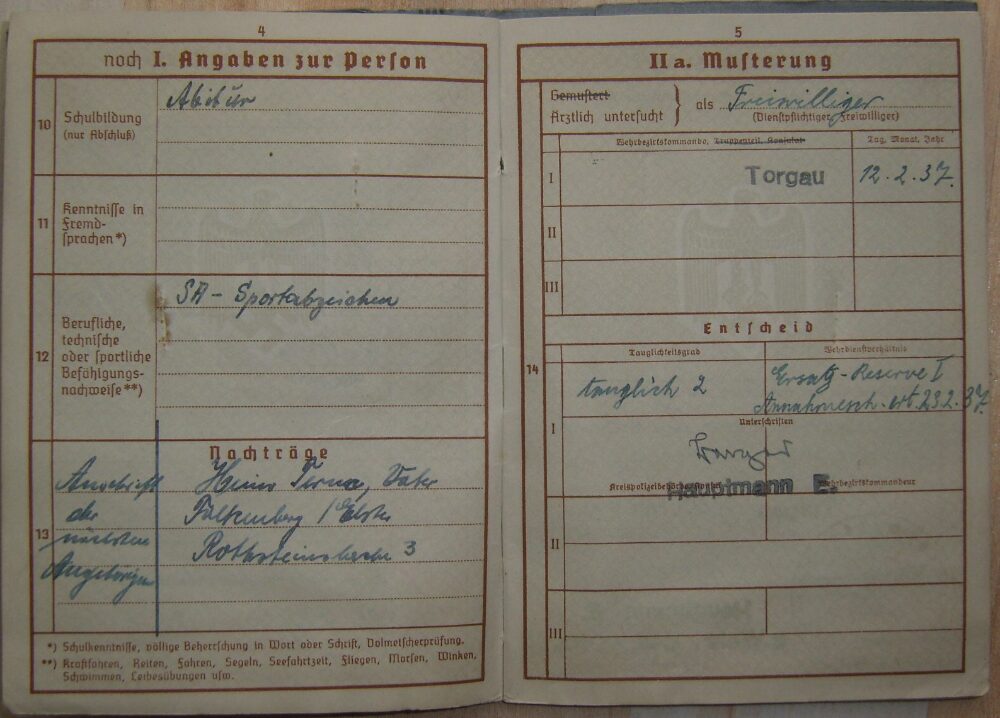 4
noch I. Angaben zur Person
10
Schulbildung
(nur Abschluß)
Abitur
11
Kenntnisse in
Fremd-
sprachen *)
12
Berufliche,
technische
oder sportliche
Befähigungs-
nachweise **)
SA - Sportabzeichen
13
Nachträge
Anschrift
der
nächsten
Angehörigen
Vater
Falkenberg / Elster
3
*) Schulkenntnisse, völlige Beherrschung in Wort oder Schrift, Dolmetscherprüfung.
**) Kraftfahren, Reiten, Fahren, Segeln, Seefahrtzeit, Fliegen, Morsen, Winken,
Schwimmen, Leibesübungen usw.
5
II a. Musterung
Gemustert
Ärztlich untersucht } als Freiwilliger
(Dienstpflichtiger, Freiwilliger)
Wehrbezirkskommando, Truppenteil, Konsulat
Tag, Monat, Jahr
I
Torgau
12.2.37.
II
III
Entscheid
14
Tauglichkeitsgrad
Wehrdienstverhältnis
I
tauglich 2
Ersatz-Reserve I
Annahmesch. ert. 23.2.37.
Unterschriften
Kreispolizeibehörde
Wehrbezirkskommandeur
Hauptmann E.
II
III